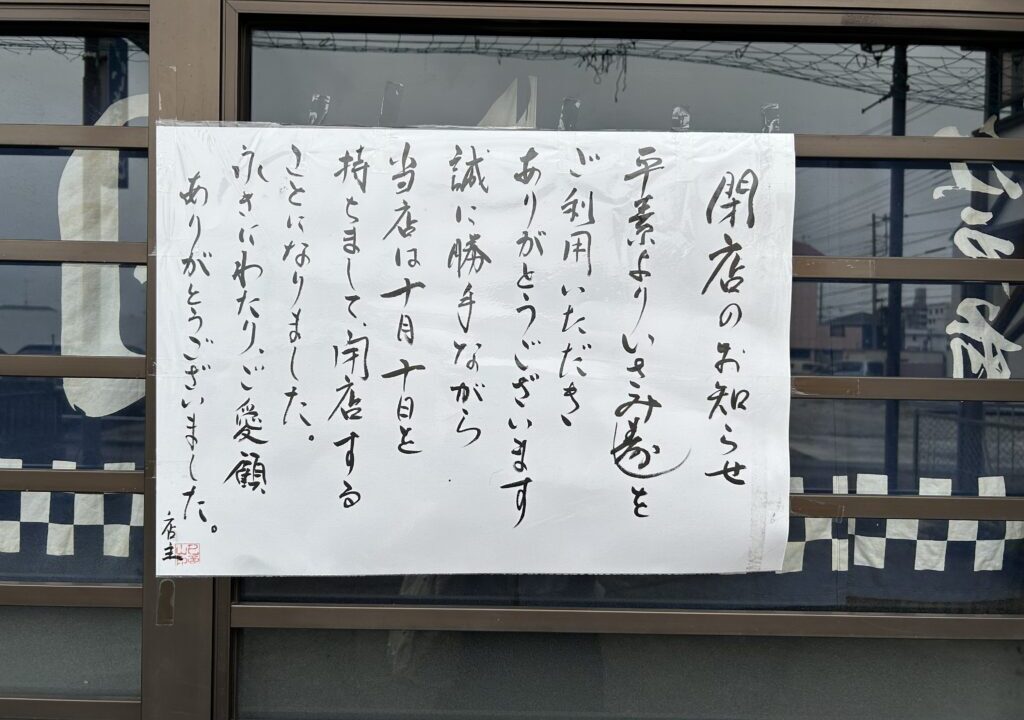 閉店のお知らせ
平素よりいさみ寿を
ご利用いただき
ありがとうございます
誠に勝手ながら
当店は十月十日を
持ちまして、閉店する
ことになりました。
永きにわたり、ご愛顧
ありがとうございました。
店主